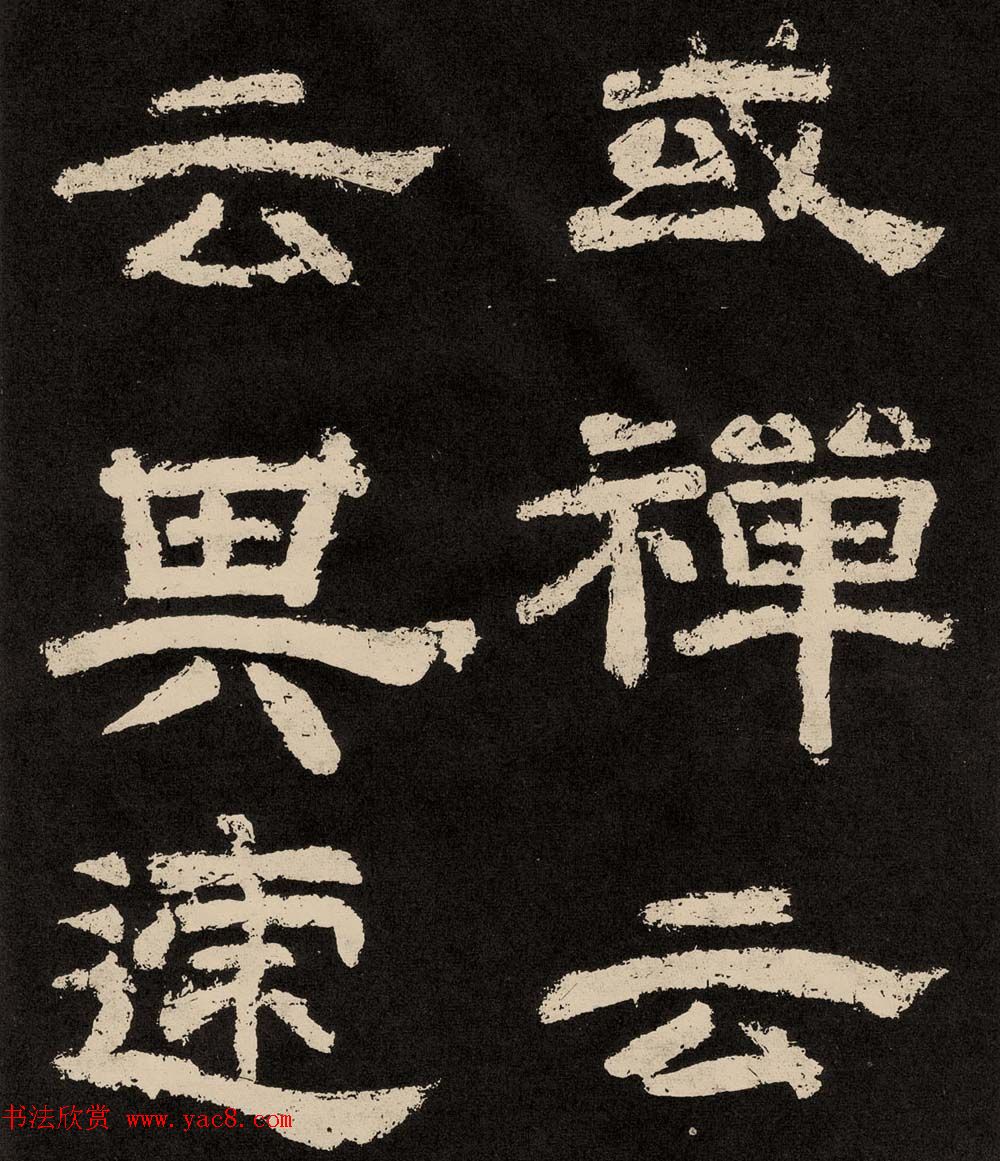 或禪云
云其𨒪
书法欣赏 www.yac8.com